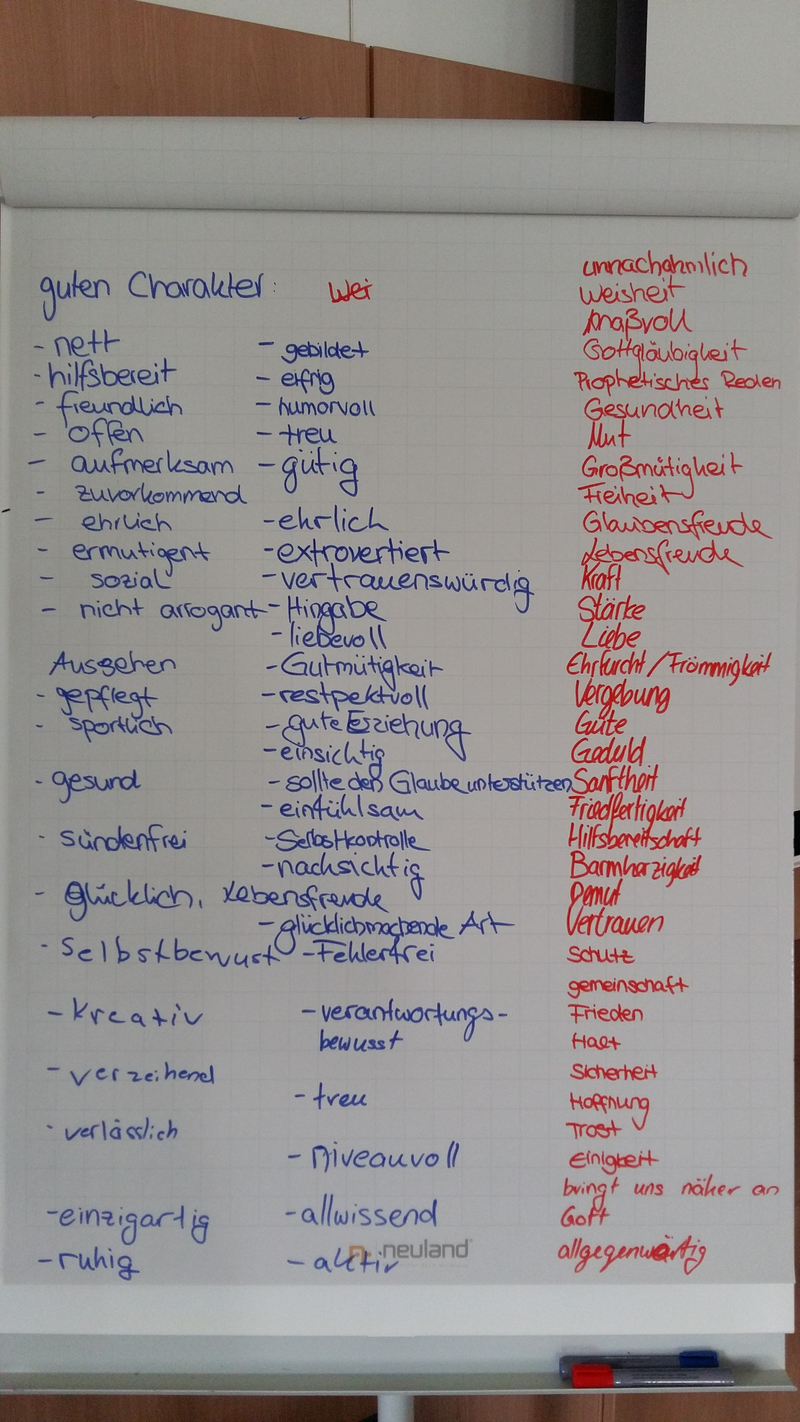 guten Charakter:
- nett
- hilfsbereit
- freundlich
- offen
- aufmerksam
- zuvorkommend
- ehrlich
- ermutigent
- sozial
- nicht arrogant
Aussehen
- gepflegt
- sportlich
- gesund
- sündenfrei
- glücklich, Lebensfreude
- selbstbewust
- kreativ
- verzeihend
- verlässlich
- einzigartig
- ruhig
Wei
- gebildet
- eifrig
- humorvoll
- treu
- gütig
- ehrlich
- extrovertiert
- vertrauenswürdig
- Hingabe
- liebevoll
- Gutmütigkeit
- restpektvoll
- gute Erziehung
- einsichtig
- sollte den Glaube unterstützen
- einfühlsam
- Selbstkontrolle
- nachsichtig
- glücklichmachende Art
- Fehlerfrei
- verantwortungs-
bewusst
- treu
- niveauvoll
- allwissend
- aktiv
neuland
unnachahmlich
Weisheit
Maßvoll
Gottgläubigkeit
Prophetisches Reden
Gesundheit
Mut
Großmütigkeit
Freiheit
Glaubensfreude
Lebensfreude
Kraft
Stärke
Liebe
Ehrfurcht / Frömmigkeit
Vergebung
Güte
Geduld
Sanftheit
Friedfertigkeit
Hilfsbereitschaft
Barmherzigkeit
Demut
Vertrauen
Schutz
gemeinschaft
Frieden
Halt
Sicherheit
Hoffnung
Trost
Einigkeit
bringt uns näher an
Gott
allgegenwärtig